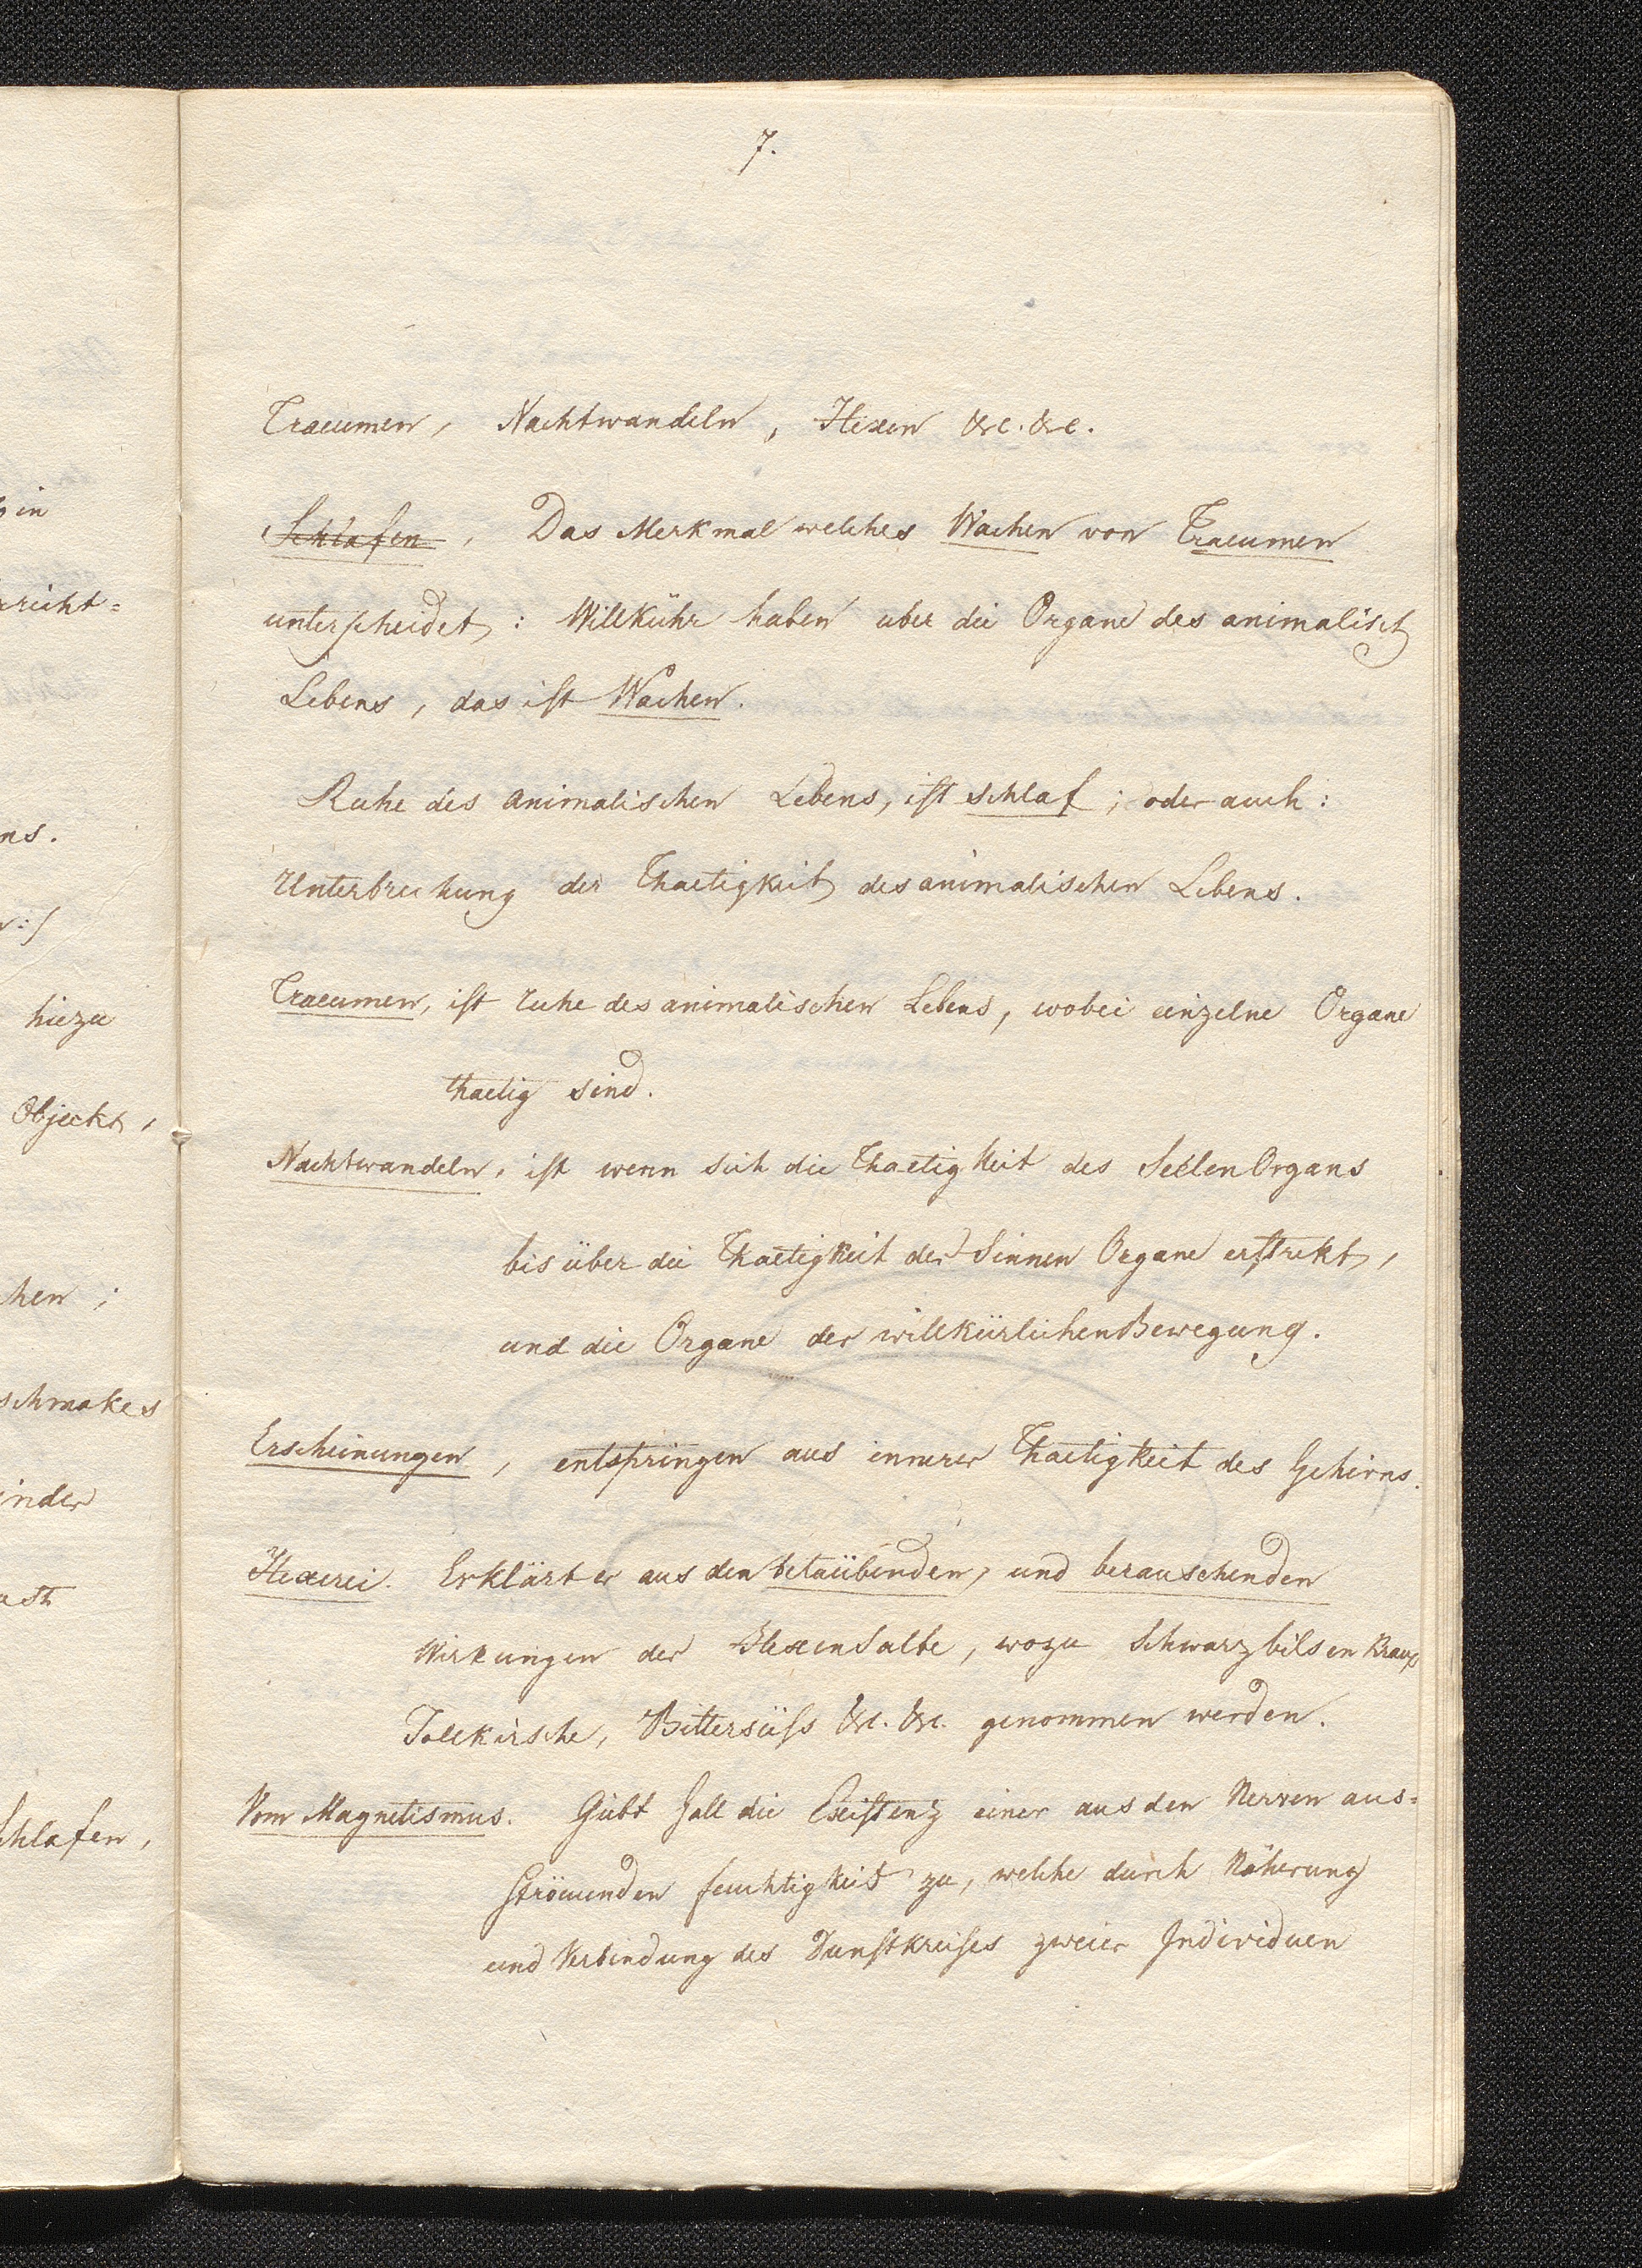 7.
Traeumen, Nachtwandeln, Hexen &c. &c.
Schlafen, Das Merkmal welches Wachen von Traeumen
unterscheidet: Willkühr haben uber die Organe des animalisch
Lebens, das ist Wachen.
Ruhe des animalischen Lebens, ist schlaf; oder auch:
Unterbrechung der Thaetigkeit des animalischen Lebens.
Traeumen, ist ruhe des animalischen Lebens, wobei einzelne Organe
thaetig sind.
Nachtwandeln, ist wenn sich die Thaetigkeit des Seelen Organs
bis über die Thaetigkeit der Sinnen Organe erstrekt,
und die Organe der willkürlichen Bewegung.
Erscheinungen, entspringen aus innerer Thaetigkeit des Gehirns.
Hexerei. Erklärt er aus den betaübenden, und berauschenden
Wirkungen der Hexensalbe, wozu Schwarzbilsen Kraut
Tollkirsche, Bittersüss &c. &c. genommen werden.
Vom Magnetismus. Giebt Gall die Existenz einer aus den Nerven aus-
strömenden feuchtigkeit zu, welche durch Näherung
und Verbindung des Dunstkreises zweier Individuen
in
richt=
ns.
:/
hiezu
Objekt,
hen;
schmakes
inder
schlafen,